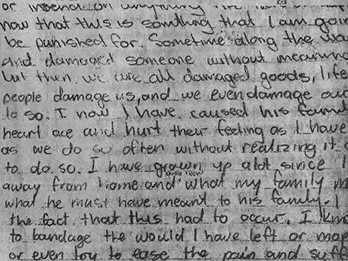 or insencd on anything
now that this is somthing that I am goin
be punished for. Sometime along the wa
and damaged someone without meaning
but then we are all damaged goods, life
people damage us, and we even damage ou
to so. I now I have caused his famil
heart ace and hurt their feeling as I have
as we do so often without realizing it
to do so. I have grown up alot since I
away from home and what my family m
what he must have meant to his family. I
the fact that this had to occur. I kno
to bandage the would I have left or ma
or even try to ease the pain and suff